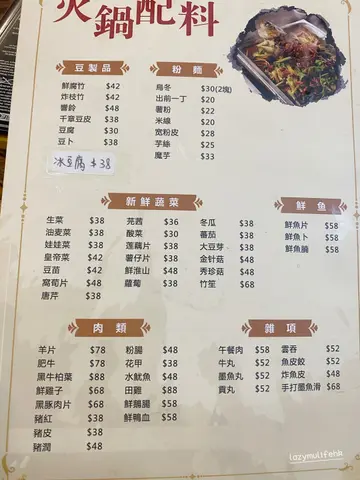 火鍋配料
豆製品
鮮腐竹 $42
炸枝竹 $42
響鈴 $48
千章豆皮 $38
豆腐 $30
豆卜 $38
冰豆腐 $38
粉麵
烏冬 $30(2塊)
出前一丁 $20
薯粉 $22
米線 $20
寬粉皮 $28
芋絲 $25
魔芋 $33
新鮮蔬菜
生菜 $38
油麥菜 $38
娃娃菜 $38
皇帝菜 $42
豆苗 $42
窩荀片 $48
唐芹 $38
芫茜 $36
酸菜 $30
蓮藕片 $38
薯仔片 $38
鮮淮山 $48
蘿蔔 $38
冬瓜 $38
蕃茄 $38
大豆芽 $38
金针菇 $48
秀珍菇 $48
竹笙 $68
鮮魚
鮮魚片 $58
鮮魚卜 $58
鮮魚腩 $58
肉類
羊片 $78
肥牛 $78
黑牛柏葉 $88
鮮雞子 $68
黑豚肉片 $68
豬紅 $38
豬皮 $38
豬潤 $48
粉腸 $48
花甲 $38
水魷魚 $48
田雞 $88
鮮鵝腸 $58
鮮鴨血 $58
雜項
午餐肉 $58
牛丸 $52
墨魚丸 $52
貢丸 $52
雲吞 $52
魚皮餃 $52
炸魚皮 $48
手打墨魚滑 $68
lazymulifehk